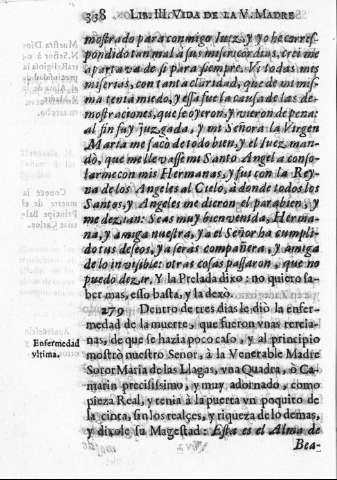 338 LIB. III. VIDA DE LA V. MADRE
mostrado para conmigo luz, y yo he corres-
pondido tan mal à sus misericordias, crei me
apartava de si para siempre. Vi todas mis
miserias, con tanta claridad, que de mi mis-
ma tenia miedo, y essa fue la causa de las de-
mostraciones, que se oyeron, y vieron de pena:
al fin fuy juzgada, y mi Señora la Virgen
Maria me saco de todo bien, y el Iuez man-
dò, que me llevasse mi Santo Angel a conso-
larme con mis Hermanas, y fus con la Rey-
va de los Angeles al Cielo, à donde todos los
Santos, y Angeles me dieron el parabien, y
me dezian: Seas muy bienvenida, Herma-
na, y amiga nuestra, ya el Señor ha cumpli-
do tus deseos, ya seràs compañera, y amiga
de lo invisible: otras cosas passaron, que no
puedo dezir. Y la Prelada dixo: no quiero sa-
ber mas, esso basta, y la dexò.
279 Dentro de tres dias le diò la enfer-
medad de la muerte, que fueron vnas tercia-
nas, de que se hazia poco caso, y al principio
mostrò nuestro Señor, à la Venerable Madre
Soror Maria de las Llagas, vna Quadra, ò Ca-
marin precisissimo, y muy adornado, como
pieza Real, y tenia à la puerta vn poquito de
la cinta, sin los realçes, y riqueza de lo demas,
y dixole su Magestad: Esta es el Alma de
Bea-
Enfermedad
vltima.